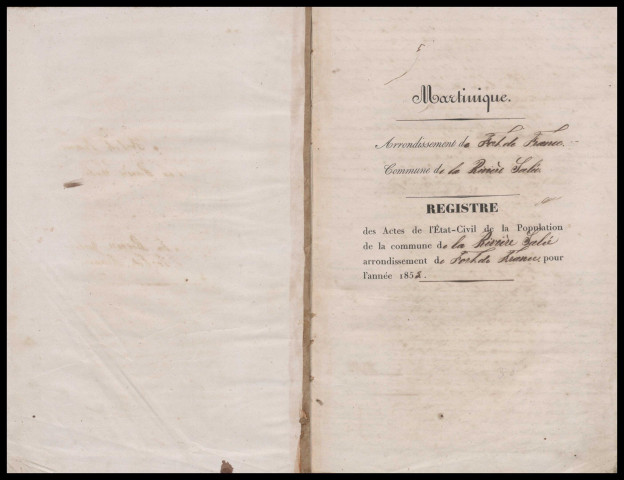 Martinique.
Arrondissement de Fort de France.
Commune de la Rivière Salée
REGISTRE
des Actes de l'État-Civil de la Population
de la commune de la Rivière Salée
arrondissement de Fort de France, pour
l'année 185